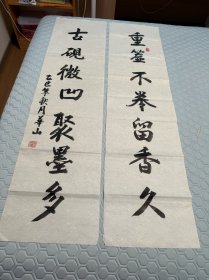 重簾不捲留香久
古硯微凹聚墨多
乙巳年秋月華山